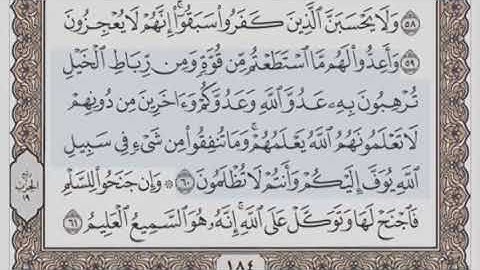 ﴿٥٨﴾ وَلَا يَحْسَبَنَّ ٱلَّذِينَ كَفَرُوا۟ سَبَقُوٓا۟ ۚ إِنَّهُمْ لَا يُعْجِزُونَ
﴿٥٩﴾ وَأَعِدُّوا۟ لَهُم مَّا ٱسْتَطَعْتُم مِّن قُوَّةٍ وَمِن رِّبَاطِ ٱلْخَيْلِ
تُرْهِبُونَ بِهِۦ عَدُوَّ ٱللَّهِ وَعَدُوَّكُمْ وَءَاخَرِينَ مِن دُونِهِمْ
لَا تَعْلَمُونَهُمُ ٱللَّهُ يَعْلَمُهُمْ ۚ وَمَا تُنفِقُوا۟ مِن شَىْءٍ فِى سَبِيلِ
ٱللَّهِ يُوَفَّ إِلَيْكُمْ وَأَنتُمْ لَا تُظْلَمُونَ ﴿٦٠﴾ ۞ وَإِن جَنَحُوا۟ لِلسَّلْمِ
فَٱجْنَحْ لَهَا وَتَوَكَّلْ عَلَى ٱللَّهِ ۚ إِنَّهُۥ هُوَ ٱلسَّمِيعُ ٱلْعَلِيمُ ﴿٦١﴾
ربع
الحزب
١٩
١٨٤